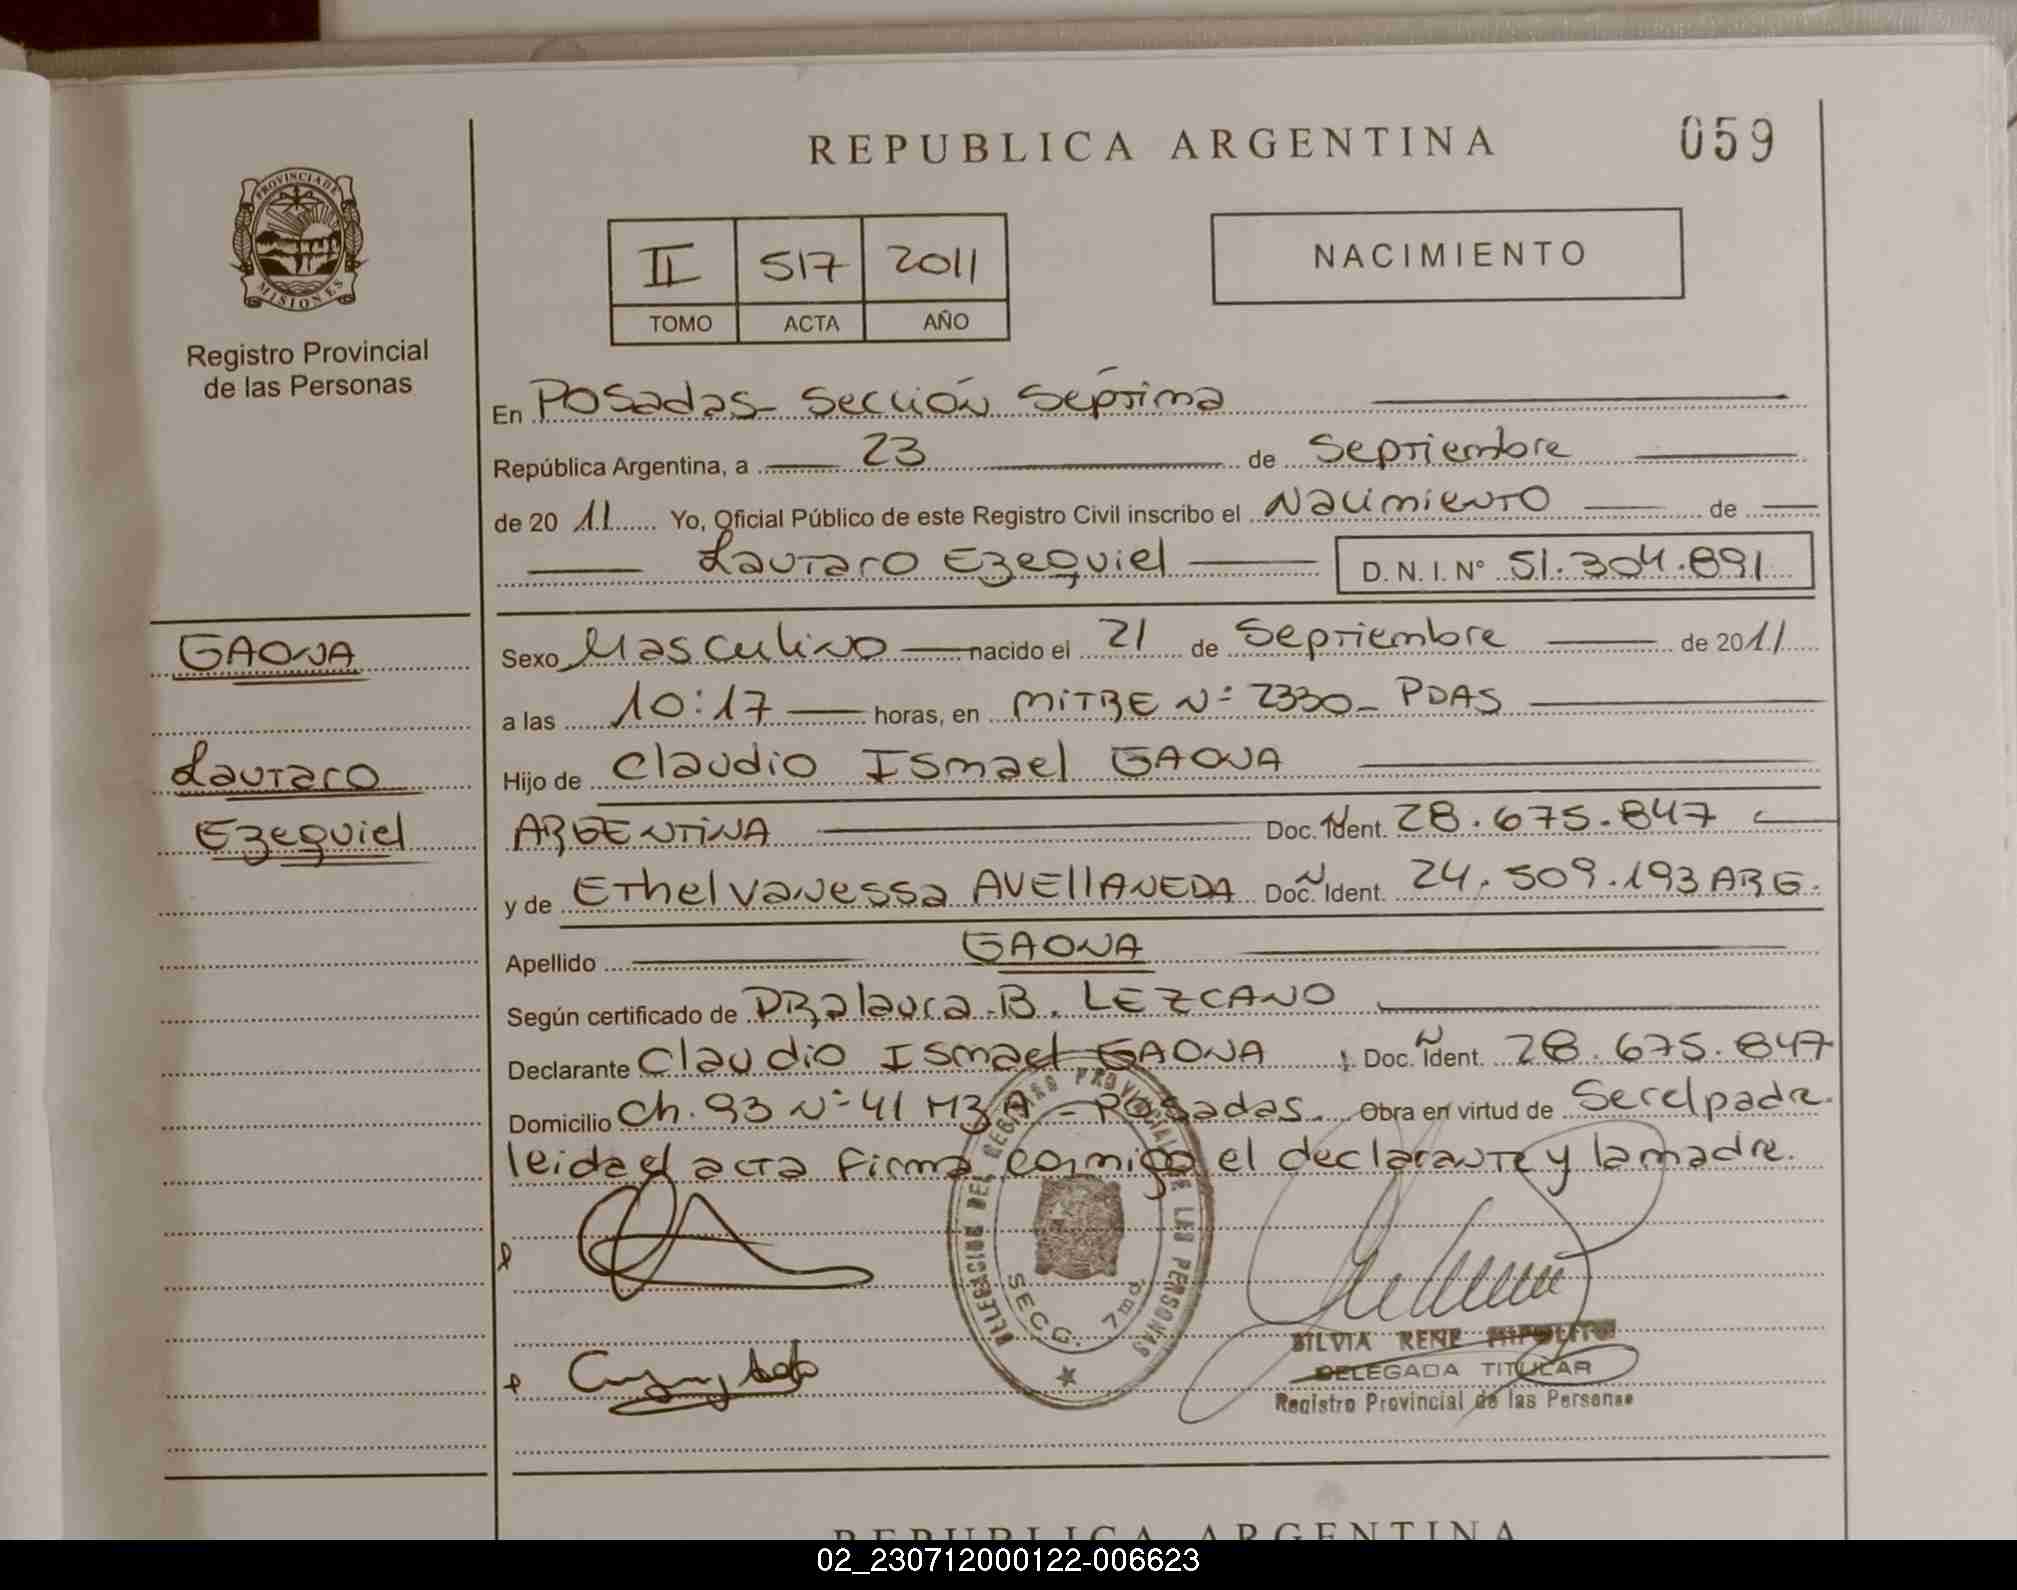 REPUBLICA ARGENTINA
059
PROVINCIA DE
MISIONES
Registro Provincial
de las Personas
II 517 2011
TOMO ACTA AÑO
NACIMIENTO
En Posadas - Sección Séptima
República Argentina, a 23 de Septiembre
de 20 11 Yo, Oficial Público de este Registro Civil inscribo el Nacimiento de
Lautaro Ezequiel D.N.I. N° 51.304.891
GAONA
Sexo Masculino nacido el 21 de Septiembre de 2011
a las 10:17 horas, en MiTRE N° 2330 - PDAS
Lautaro
Hijo de Claudio Ismael GAONA
Ezequiel
ARGENTINA Doc. Ident. N 28.675.847
y de Ethel Vanessa AVEllANEDA Doc. N Ident. 24.509.193 ARG.
Apellido GAONA
Según certificado de DRa laura B. LEZCANO
Declarante Claudio Ismael GAONA Doc. N Ident. 28.675.847
Domicilio Ch. 93 N° 41 MZ A - Posadas. Obra en virtud de Ser el padre.
leida el acta firma conmigo el declarante y la madre.
DELEGACION DEL REGISTRO PROVINCIAL DE LAS PERSONAS
SECC. 7ma
SILVIA RENE HIPOLITO
DELEGADA TITULAR
Registro Provincial de las Personas
REPUBLICA ARGENTINA
02_230712000122-006623